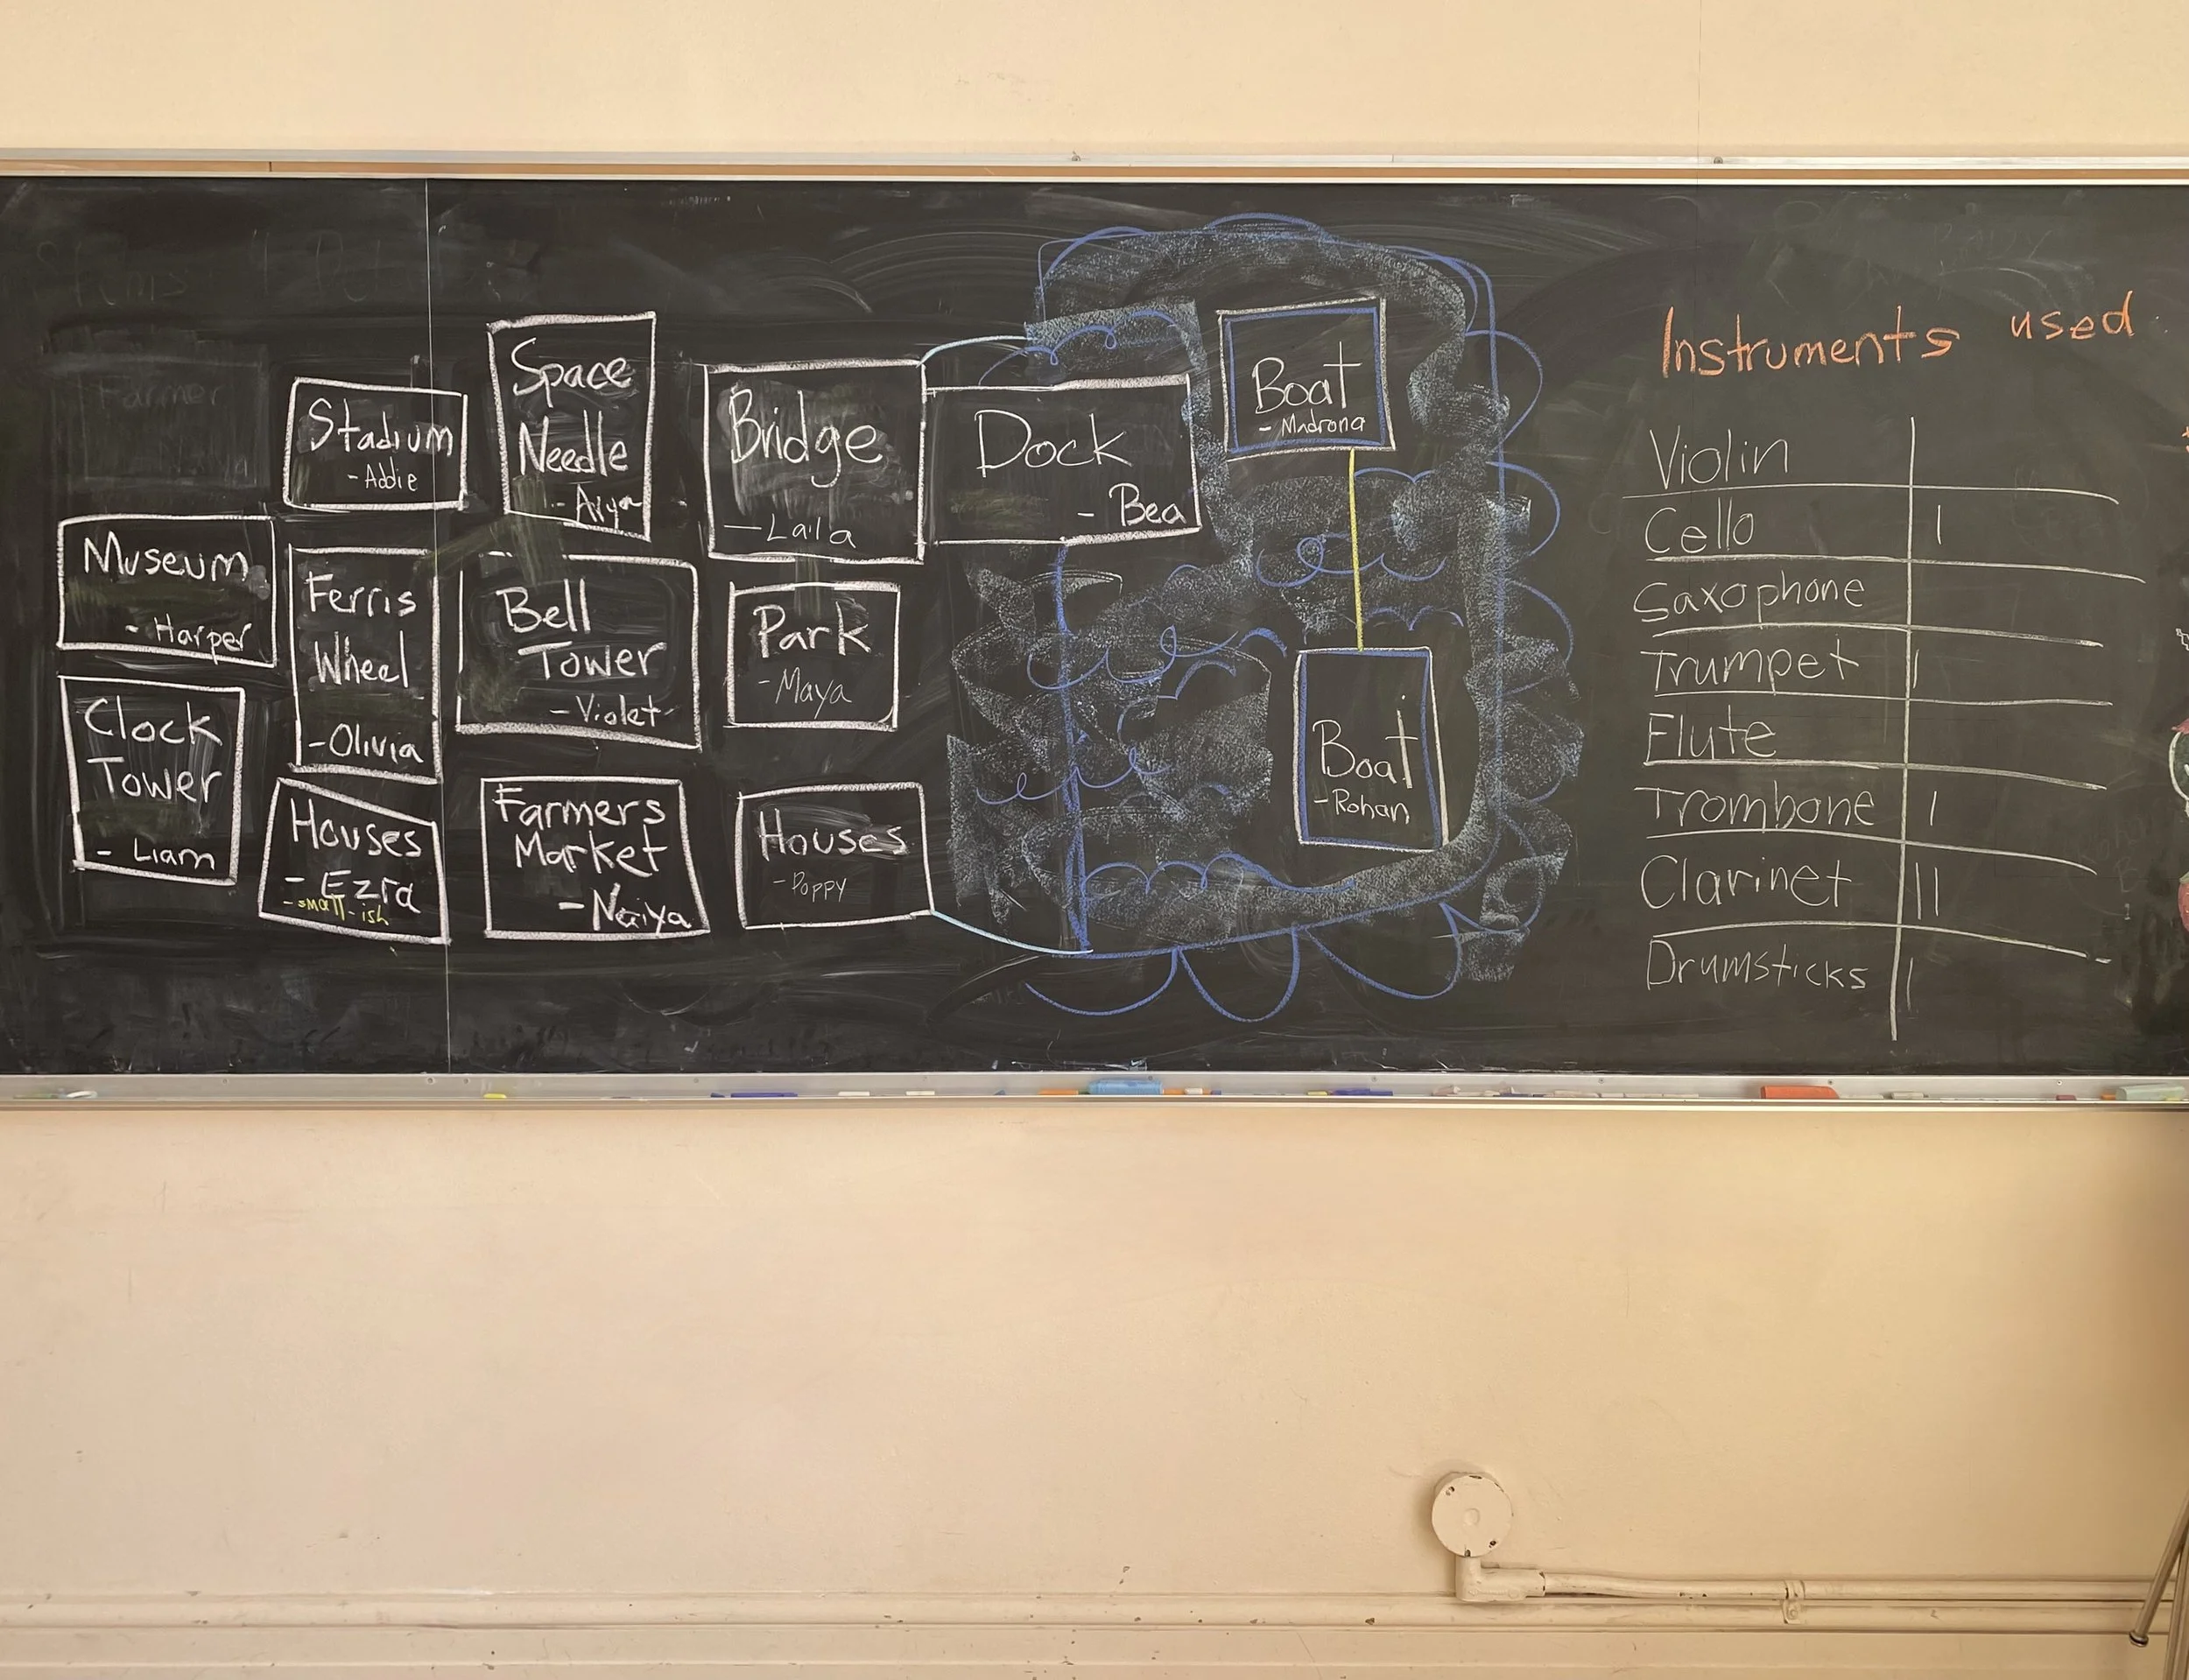 Farmer
Stadium
- Addie
Space
Needle
- Arya
Bridge
- Laila
Dock
- Bea
Boat
- Madrona
Museum
- Harper
Ferris
Wheel
- Olivia
Bell
Tower
- Violet
Park
- Maya
Boat
- Rohan
Clock
Tower
- Liam
Houses
- Ezra
- small-ish
Farmers
Market
- Naiya
Houses
- Poppy
Instruments used
Violin
Cello I
Saxophone
Trumpet I
Flute
Trombone I
Clarinet II
Drumsticks I